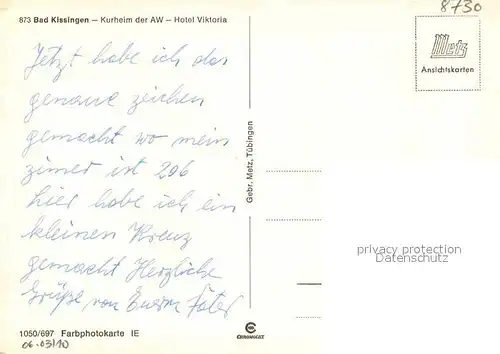 873 Bad Kissingen – Kurheim der AW – Hotel Viktoria
8730
Metz
Ansichtskarten
Jetzt habe ich das
genaue zeichen
gemacht wo mein
zimer ist 206
hier habe ich ein
kleinen Kreuz
gemacht Herzliche
Grüße von Euerm Fater
Gebr. Metz, Tübingen
privacy protection
Datenschutz
1050/697 Farbphotokarte IE
CHROMOLUX
06.03/10